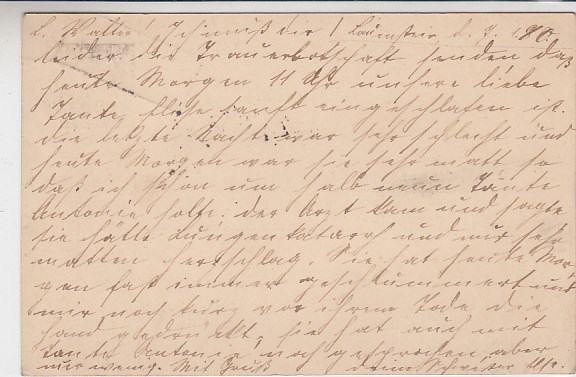 L. Walter! Ich muß dir
leider die Trauerbotschaft senden daß
heute Morgen 11 Uhr unsere liebe
Tante sanft eingeschlafen ist.
die letzte Nacht war sehr schlecht und
heute Morgen war sie sehr matt so
daß ich schon um halb neun Tante
Antonie holte. der Arzt kam und sagte
sie hätte Lungenkatarrh und nur sehr
matten Herzschlag. Sie hat heute Mor-
gen fast immer geschlummert und
mir noch kurz vor ihrem Tode die
Hand gedrückt, sie hat auch mit
Tante Antonie noch gesprochen, aber
nur wenig. Mit Gruß deine Schwester